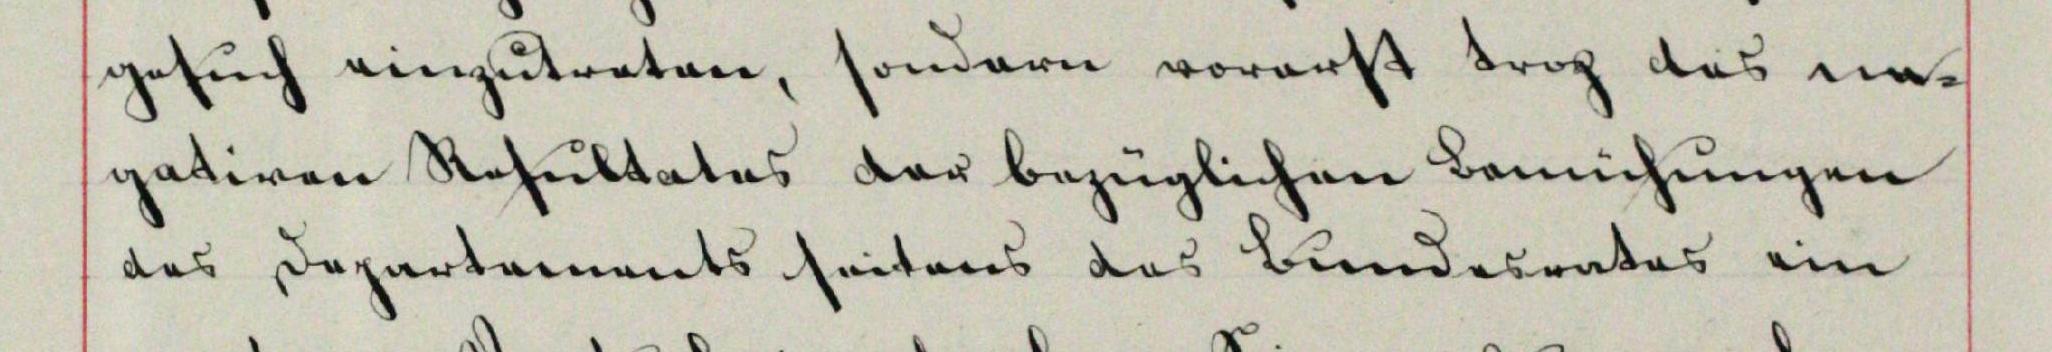 gesuch einzutreten, sondern vorerst troz des ne-
gativen Resultates der bezüglichen Bemühungen
des Departements seitens des Bundesrates ein